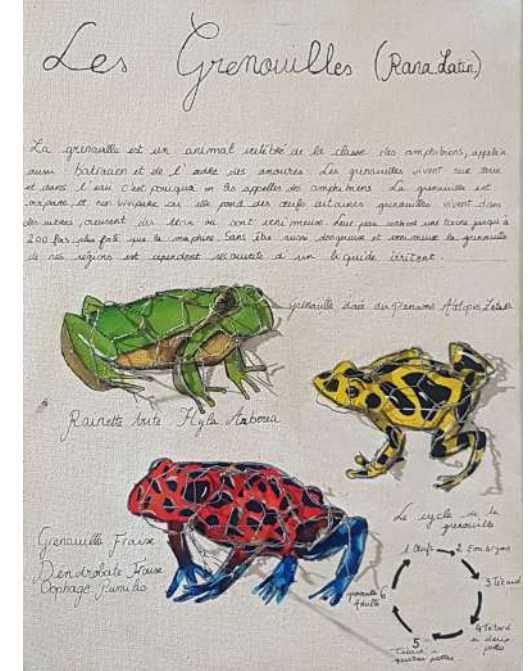 Les Grenouilles (Rana Latin)
La grenouille est un animal vertébré de la classe des amphibiens, appelée
aussi batracien et de l'ordre des anoures. Les grenouilles vivent sur terre
et dans l'eau c'est pourquoi on les appelles des amphibiens La grenouille est
ovipare et non vivipare car elle pond des œufs certaines grenouilles vivent dans
des arbres, creusent des ou sont venimeuse. Leur peau contient une toxine jusqu'à
200 fois plus que la morphine. Sans être aussi dangereuse et venimeuse la grenouille
de nos régions est cependant d'un liquide irritant.
grenouille dorée du Panama Atelopus Zeteki
Rainette verte Hyla Arborea
Grenouille Fraise
Dendrobate Fraise
Oophaga Pumilio
Le cycle de la
grenouille
1 Œufs
2 Embryons
3 Têtard
4 Têtard
à deux
pattes
5
Têtard à
quatre pattes
grenouille 6
Adulte